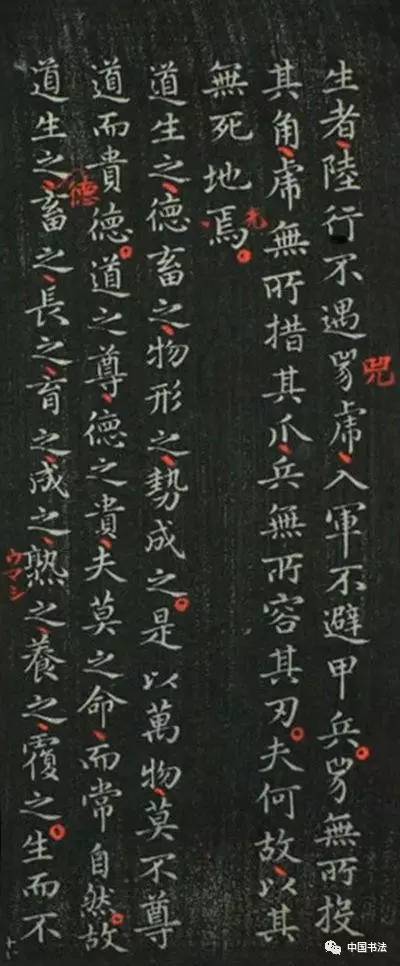 生者陸行不遇兕虎入軍不避甲兵兕無所投
兕
其角虎無所措其爪兵無所容其刃夫何故以其
無死地焉
道生之德畜之物形之勢成之是以萬物莫不尊
道而貴德道之尊德之貴夫莫之命而常自然故
德
道生之畜之長之育之成之熟之養之覆之生而不
ウマシ
中国书法